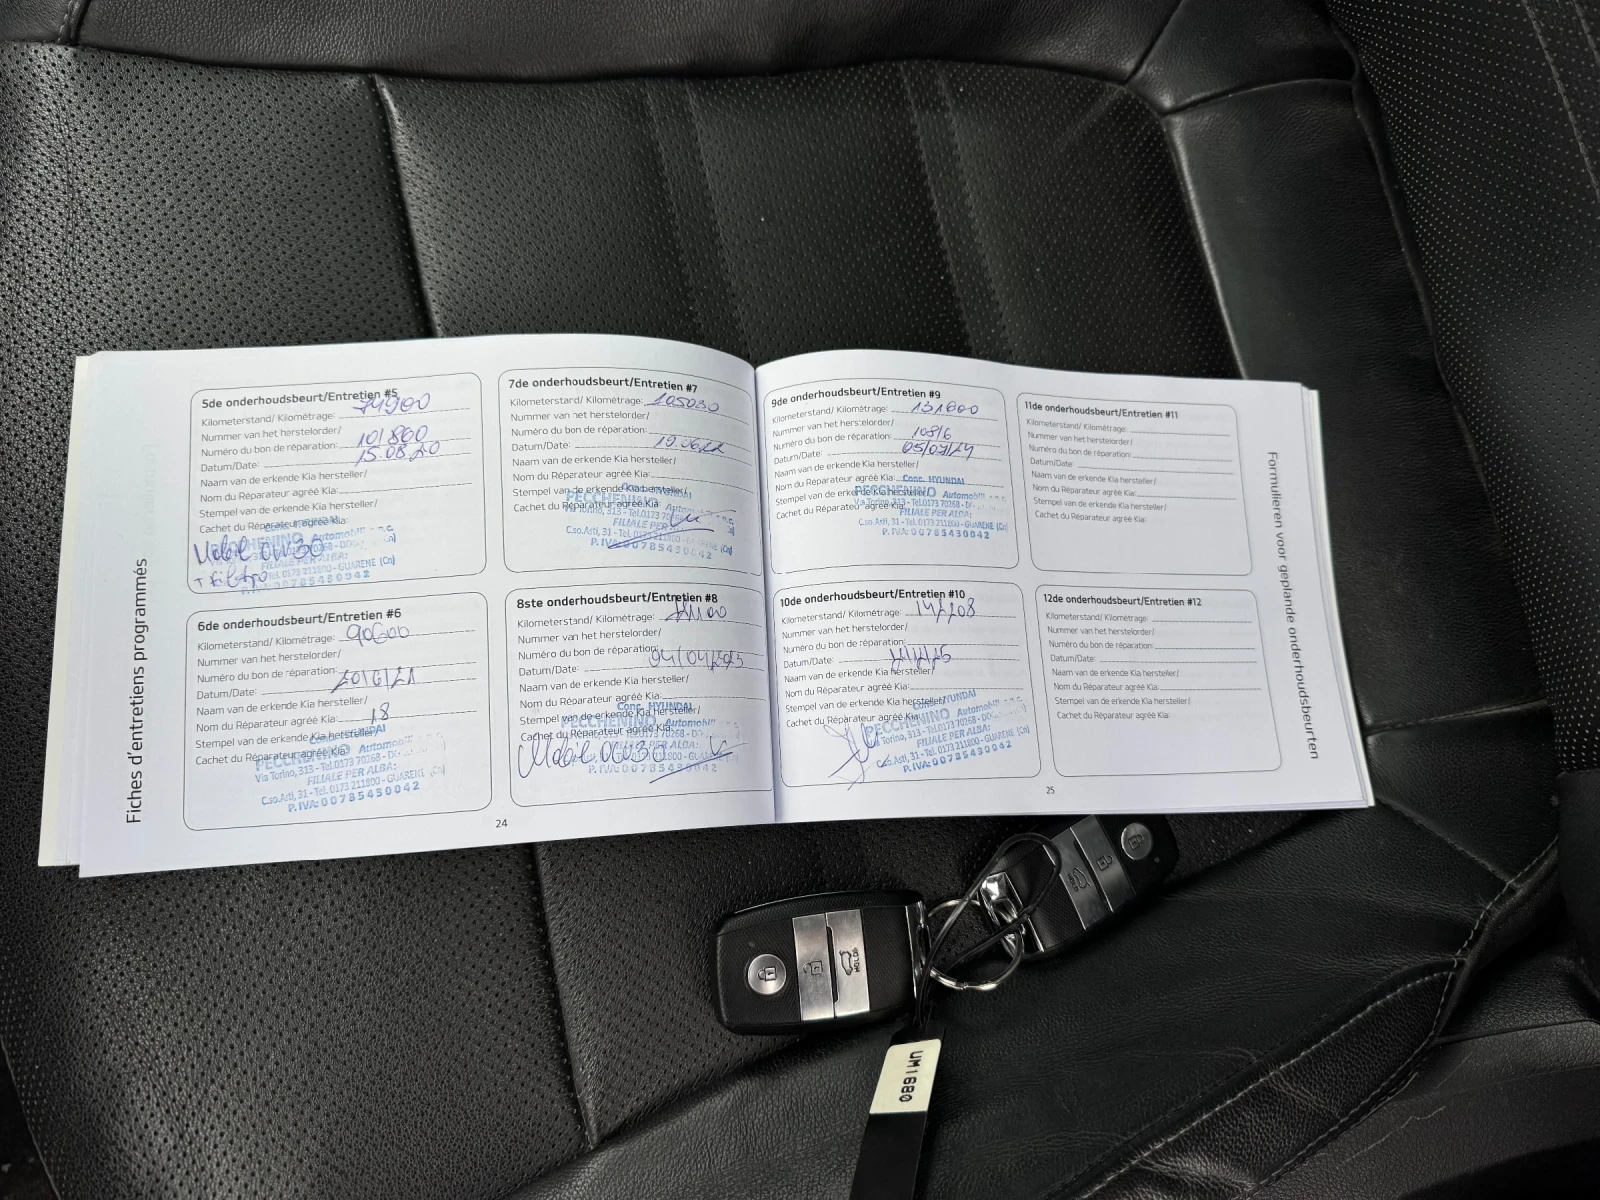 Fiches d'entretiens programmés
5de onderhoudsbeurt/Entretien #5
Kilometerstand/ Kilométrage: 74900
Nummer van het herstelorder/
Numéro du bon de réparation: 101800
Datum/Date: 15.08.20
Naam van de erkende Kia hersteller/
Nom du Réparateur agréé Kia:
Stempel van de erkende Kia hersteller/
Cachet du Réparateur agréé Kia:
Mobil 0W30
+ filtro
6de onderhoudsbeurt/Entretien #6
Kilometerstand/ Kilométrage: 90600
Nummer van het herstelorder/
Numéro du bon de réparation:
Datum/Date:
Naam van de erkende Kia hersteller/
Nom du Réparateur agréé Kia: 18
Stempel van de erkende Kia hersteller/
Cachet du Réparateur agréé Kia:
PECCHENINO Automobili
Via Torino, 313 - Tel.0173 70268
FILIALE PER ALBA:
C.so.Asti, 31 - Tel. 0173 211800 - GUARENE (Cn)
P. IVA: 00785450042
7de onderhoudsbeurt/Entretien #7
Kilometerstand/ Kilométrage: 105030
Nummer van het herstelorder/
Numéro du bon de réparation:
Datum/Date: 19.06.22
Naam van de erkende Kia hersteller/
Nom du Réparateur agréé Kia:
Stempel van de erkende Kia hersteller/
Cachet du Réparateur agréé Kia:
PECCHENINO Automobili
Via Torino, 313 - Tel.0173 70268
FILIALE PER ALBA:
C.so.Asti, 31 - Tel. 0173 211800 - GUARENE (Cn)
P. IVA: 00785450042
8ste onderhoudsbeurt/Entretien #8
Kilometerstand/ Kilométrage:
Nummer van het herstelorder/
Numéro du bon de réparation:
Datum/Date: 04/04/2023
Naam van de erkende Kia hersteller/
Nom du Réparateur agréé Kia:
Stempel van de erkende Kia hersteller/
Cachet du Réparateur agréé Kia:
Conc. HYUNDAI
PECCHENINO Automobili
Mobil 0W30
24
9de onderhoudsbeurt/Entretien #9
Kilometerstand/ Kilométrage: 131600
Nummer van het herstelorder/
Numéro du bon de réparation: 108/6
Datum/Date: 05/07/24
Naam van de erkende Kia hersteller/
Nom du Réparateur agréé Kia:
Stempel van de erkende Kia hersteller/
Cachet du Réparateur agréé Kia:
Conc. HYUNDAI
PECCHENINO Automobili
Via Torino, 313 - Tel.0173 70268
FILIALE PER ALBA:
C.so.Asti, 31 - Tel. 0173 211800 - GUARENE (Cn)
P. IVA: 00785450042
10de onderhoudsbeurt/Entretien #10
Kilometerstand/ Kilométrage: 147208
Nummer van het herstelorder/
Numéro du bon de réparation:
Datum/Date:
Naam van de erkende Kia hersteller/
Nom du Réparateur agréé Kia:
Stempel van de erkende Kia hersteller/
Cachet du Réparateur agréé Kia:
Conc. HYUNDAI
PECCHENINO Automobili
Via Torino, 313 - Tel.0173 70268
FILIALE PER ALBA:
C.so.Asti, 31 - Tel. 0173 211800 - GUARENE (Cn)
P. IVA: 00785450042
11de onderhoudsbeurt/Entretien #11
Kilometerstand/ Kilométrage:
Nummer van het herstelorder/
Numéro du bon de réparation:
Datum/Date:
Naam van de erkende Kia hersteller/
Nom du Réparateur agréé Kia:
Stempel van de erkende Kia hersteller/
Cachet du Réparateur agréé Kia:
12de onderhoudsbeurt/Entretien #12
Kilometerstand/ Kilométrage:
Nummer van het herstelorder/
Numéro du bon de réparation:
Datum/Date:
Naam van de erkende Kia hersteller/
Nom du Réparateur agréé Kia:
Stempel van de erkende Kia hersteller/
Cachet du Réparateur agréé Kia:
25
Formulieren voor geplande onderhoudsbeurten
HOLD
HOLD
UM1680